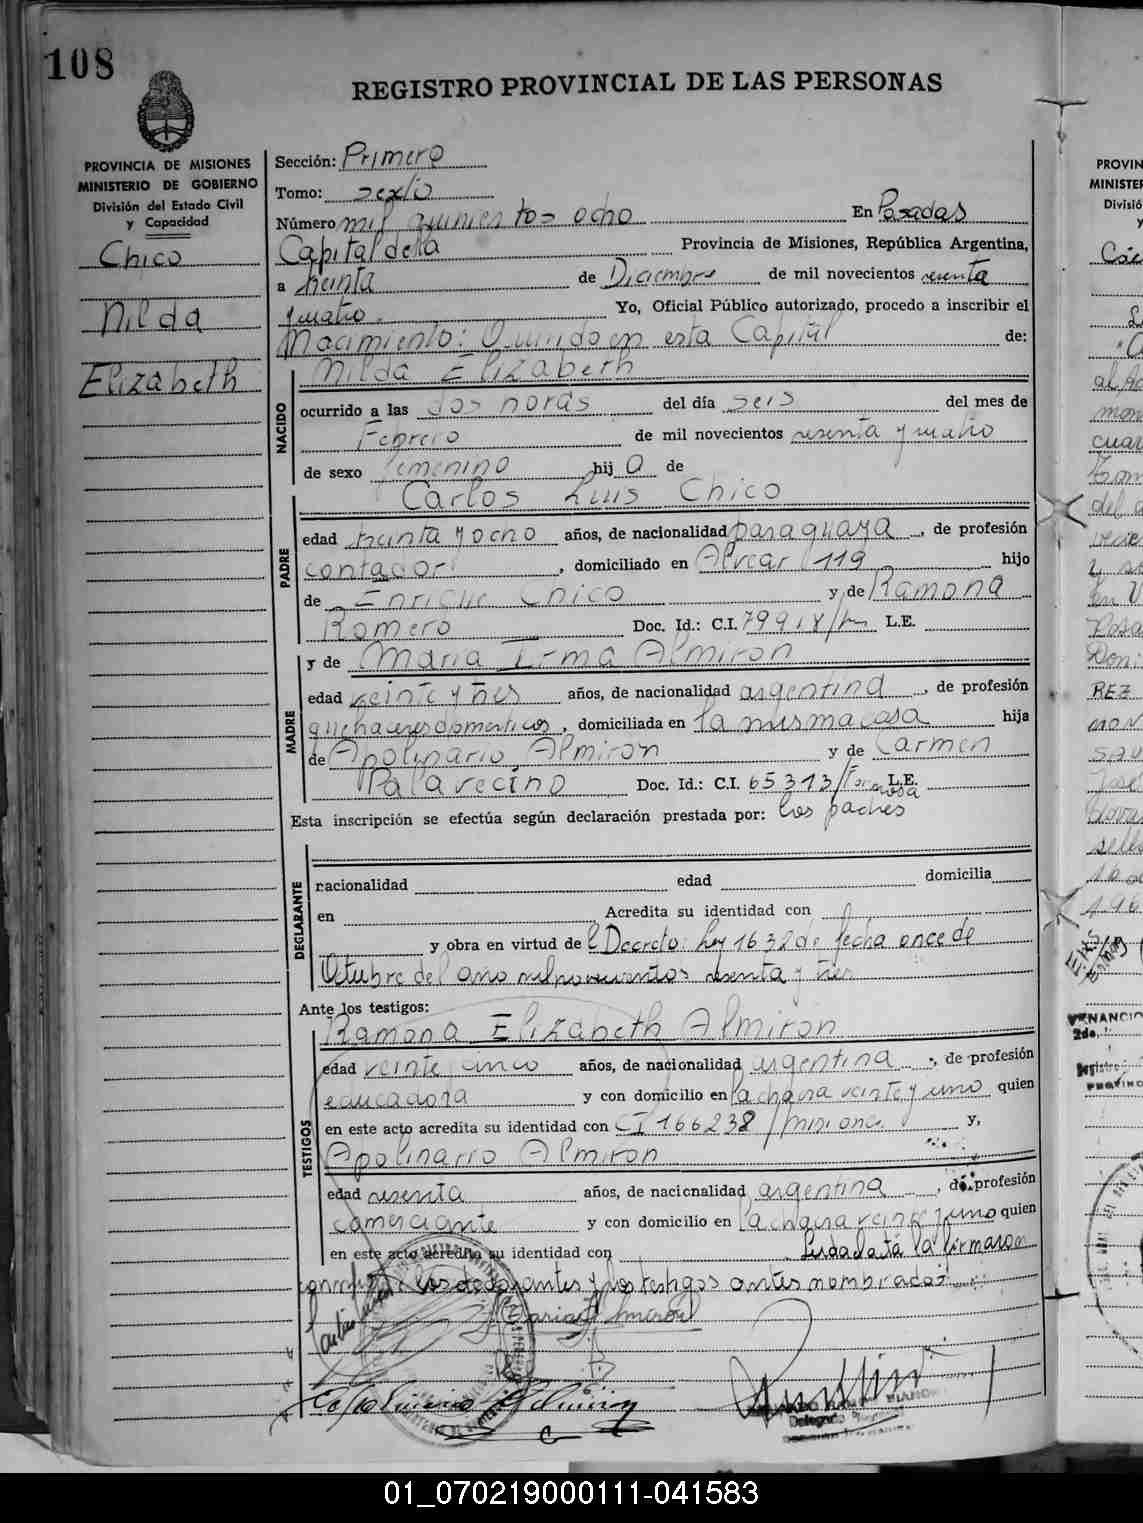 108
REGISTRO PROVINCIAL DE LAS PERSONAS
PROVINCIA DE MISIONES
MINISTERIO DE GOBIERNO
División del Estado Civil
y Capacidad
Chico
Nilda
Elizabeth
Sección: Primero
Tomo: sexto
Número mil quinientos ocho En Posadas
Capital de la Provincia de Misiones, República Argentina,
a treinta de Diciembre de mil novecientos sesenta
y cuatro. Yo, Oficial Público autorizado, procedo a inscribir el
Nacimiento: Ocurrido en esta Capital de:
NACIDO
Nilda Elizabeth
ocurrido a las dos horas del día seis del mes de
Febrero de mil novecientos sesenta y cuatro
de sexo femenino hij a de
PADRE
Carlos Luis Chico
edad treinta y ocho años, de nacionalidad paraguaya, de profesión
contador, domiciliado en Alvear 119 hijo
de Enrique Chico y de Ramona
Romero Doc. Id.: C.I. L.E.
MADRE
y de Maria Irma Almiron
edad veinte y tres años, de nacionalidad argentina, de profesión
quehaceres domesticos, domiciliada en la misma casa hija
de Apolinario Almiron y de Carmen
Palavecino Doc. Id.: C.I. 65313/Formosa L.E.
Esta inscripción se efectúa según declaración prestada por: los padres
DECLARANTE
racionalidad edad domicilia
en Acredita su identidad con
y obra en virtud de el Decreto: Ley 1632 de fecha once de
Octubre del año mil novecientos sesenta y tres
Ante los testigos:
TESTIGOS
Ramona Elizabeth Almiron
edad veinte cinco años, de nacionalidad argentina, de profesión
educadora y con domicilio en la chacra veinte y uno quien
en este acto acredita su identidad con CI 166238/misiones y,
Apolinario Almiron
edad sesenta años, de nacionalidad argentina, de profesión
comerciante y con domicilio en la chacra veinte y uno quien
en este acto acredita su identidad con Leida la firmaron
los declarantes y los testigos antes nombrados
Maria I Almiron
01_070219000111-041583